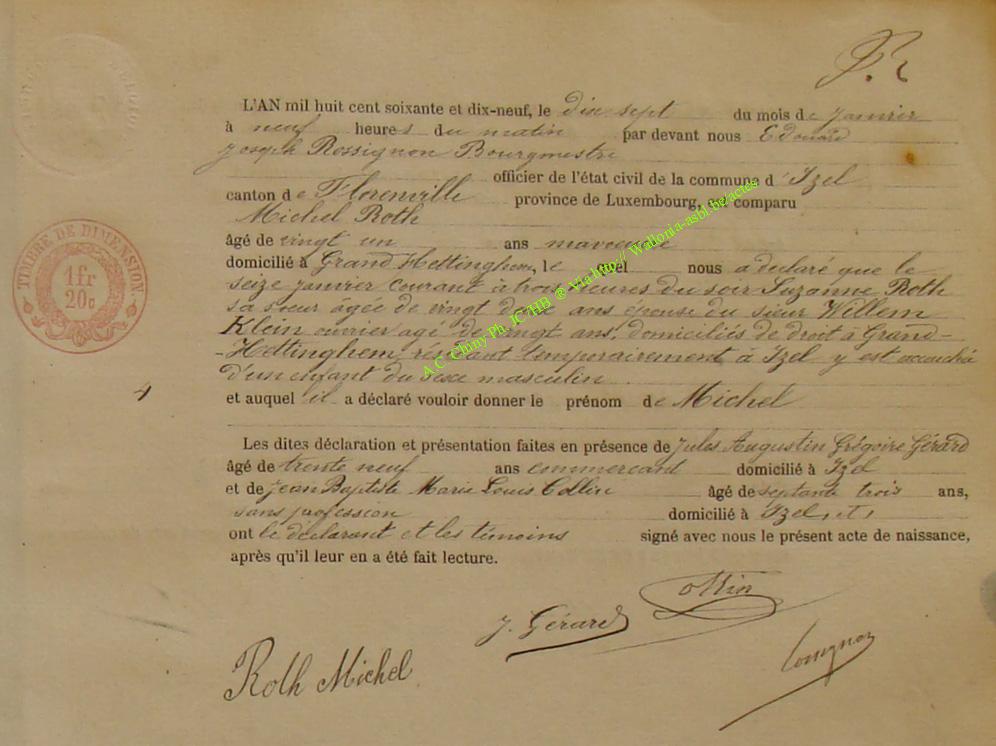 L'AN mil huit cent soixante et dix-neuf, le dix sept du mois de Janvier
à neuf heures du matin par devant nous Edouard
Joseph Rossignon Bourgmestre
officier de l'état civil de la commune d'Izel
canton de Florenville province de Luxembourg, comparu
Michel Roth
âgé de vingt un ans
domicilié à Grand Hettinghem, le quel nous a déclaré que le
seize janvier courant à trois heures du soir Suzanne Roth
sa soeur âgée de vingt ans épouse du sieur Willem
Klein ouvrier agé de vingt ans, domiciliés de droit à Grand-
-Hettinghem, résidant temporairement à Izel y est accouchée
d'un enfant du sexe masculin
4
et auquel il a déclaré vouloir donner le prénom de Michel
Les dites déclaration et présentation faites en présence de Jules Augustin Grégoire Gérard
âgé de trente neuf ans commercant domicilié à Izel
et de Jean Baptiste Marie Louis Collin âgé de septante trois ans,
sans profession domicilié à Izel, et,
ont le déclarant et les témoins signé avec nous le présent acte de naissance,
après qu'il leur en a été fait lecture.
J. Gérard
Roth Michel
TIMBRE DE DIMENSION
1 fr
20c
A.C. Chiny Ph. JC HB ® Via http// Wallonia-asbl.be/actes